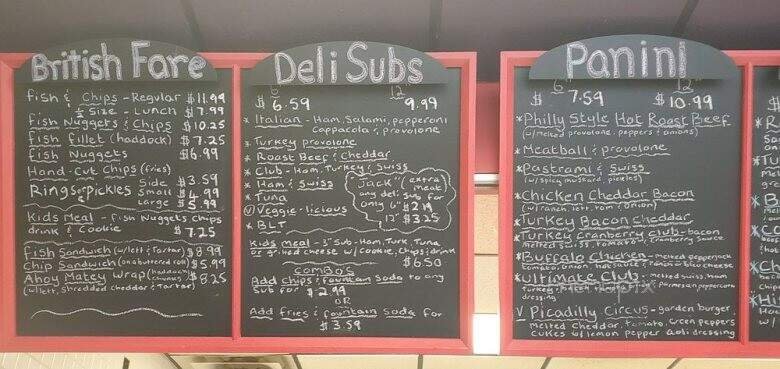 British Fare
Fish & Chips - Regular $11.99
½ Size - Lunch $7.99
Fish Nuggets & Chips $10.25
Fish Fillet (haddock) $7.25
Fish Nuggets $6.99
Hand-Cut Chips (fries)
Side $3.59
Rings or Pickles Small $4.99
Large $5.99
Kids Meal - Fish Nuggets Chips
drink & Cookie $7.25
Fish Sandwich (w/lett & Tartar) $8.99
Chip Sandwich (on a buttered roll) $5.99
Ahoy Matey Wrap (haddock chunks) $8.25
(w/lett, shredded cheddar & Tartar)
Deli Subs
6 12
$6.59 9.99
* Italian - Ham, Salami, pepperoni
Cappacola & provolone
* Turkey provolone
* Roast Beef & Cheddar
* Club - Ham, Turkey & Swiss
* Ham & Swiss
* Tuna
V Veggie-licious
* BLT
"Jack" (extra meat)
any deli sub for
only 6" $2.19
12" $3.25
Kids meal - 3" Sub - Ham, Turk, Tuna
or grilled cheese w/ Cookie, Chips & drink
$6.50
Combos
Add chips & fountain Soda to any
Sub for $2.99
OR
Add fries & fountain Soda for
$3.59
Panini
6" 12"
$7.59 $10.99
* Philly Style Hot Roast Beef
(w/melted provolone, peppers & onions)
* Meatball & provolone
* Pastrami & Swiss
(w/spicy mustard, pickles)
* Chicken Cheddar Bacon
(w/ranch, lett, tom & onion)
* Turkey Bacon Cheddar
* Turkey Cranberry Club - bacon
melted swiss, tomato, cranberry sauce
* Buffalo Chicken - melted pepperjack
tomato, onion, hot sauce & ranch or bleu cheese
* Ultimate Club - melted swiss, ham
turkey, Parmesan peppercorn
dressing
V Picadilly Circus - garden burger,
melted Cheddar, tomato, green peppers
cukes w/ lemon pepper aioli dressing